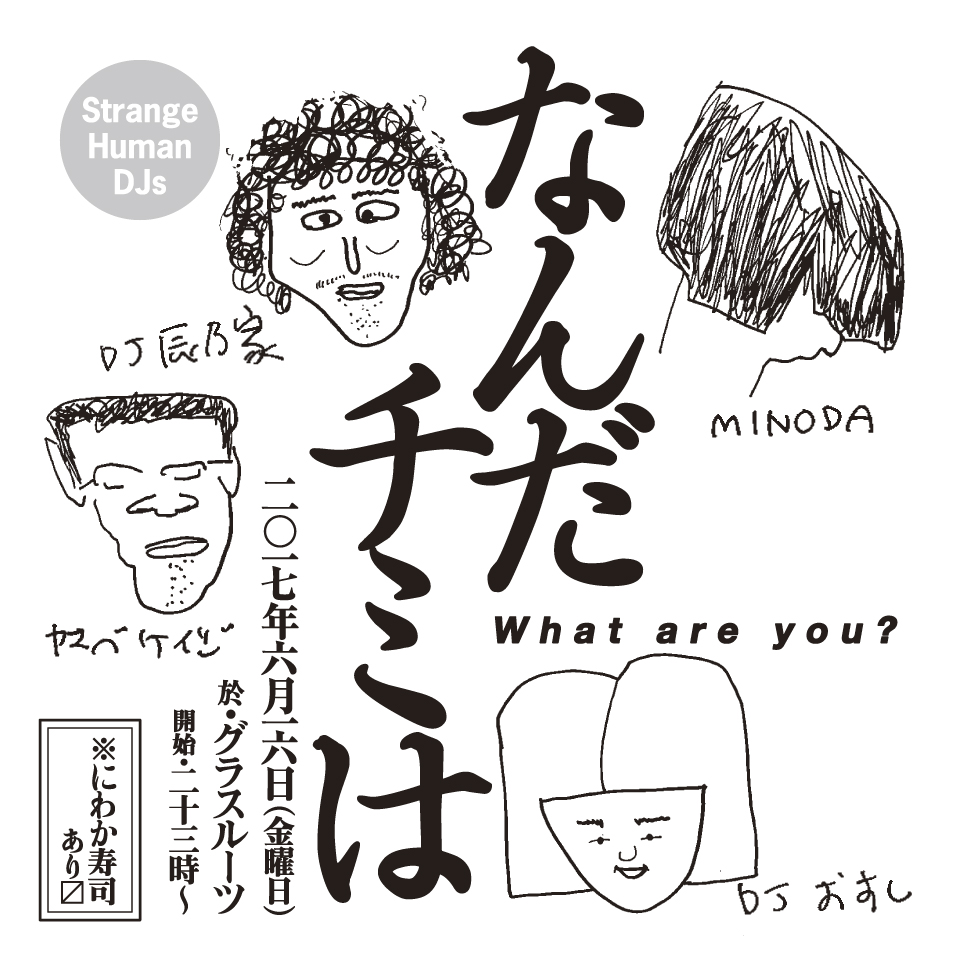 Strange
Human
DJs
なんだ
チミは
What are you?
DJ 辰乃家
MINODA
ヤスベ ケイジ
DJ おすし
二〇一七年六月一六日(金曜日)
於・グラスルーツ
開始・二十三時〜
※にわか寿司
あり〼